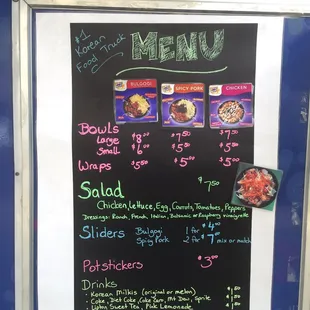 #1 Korean Food Truck
MENU
BULGOGI SPICY PORK CHICKEN
Bowls
Large $8.00 $7.50 $7.50
Small $6.00 $5.50 $5.50
Wraps $5.50 $5.00 $5.00
Salad $7.50
Chicken, Lettuce, Egg, Carrots, Tomatoes, Peppers
Dressings: Ranch, French, Italian, Balsamic or Raspberry vinaigrette
Sliders Bulgogi 1 for $4.00
Spicy Pork 2 for $7.00 mix or match
Potstickers $3.00
Drinks
• Korean Milkis (original or melon)
• Coke, Diet Coke, Coke Zero, Mt Dew, Sprite
• Lipton Sweet Tea, Pink Lemonade